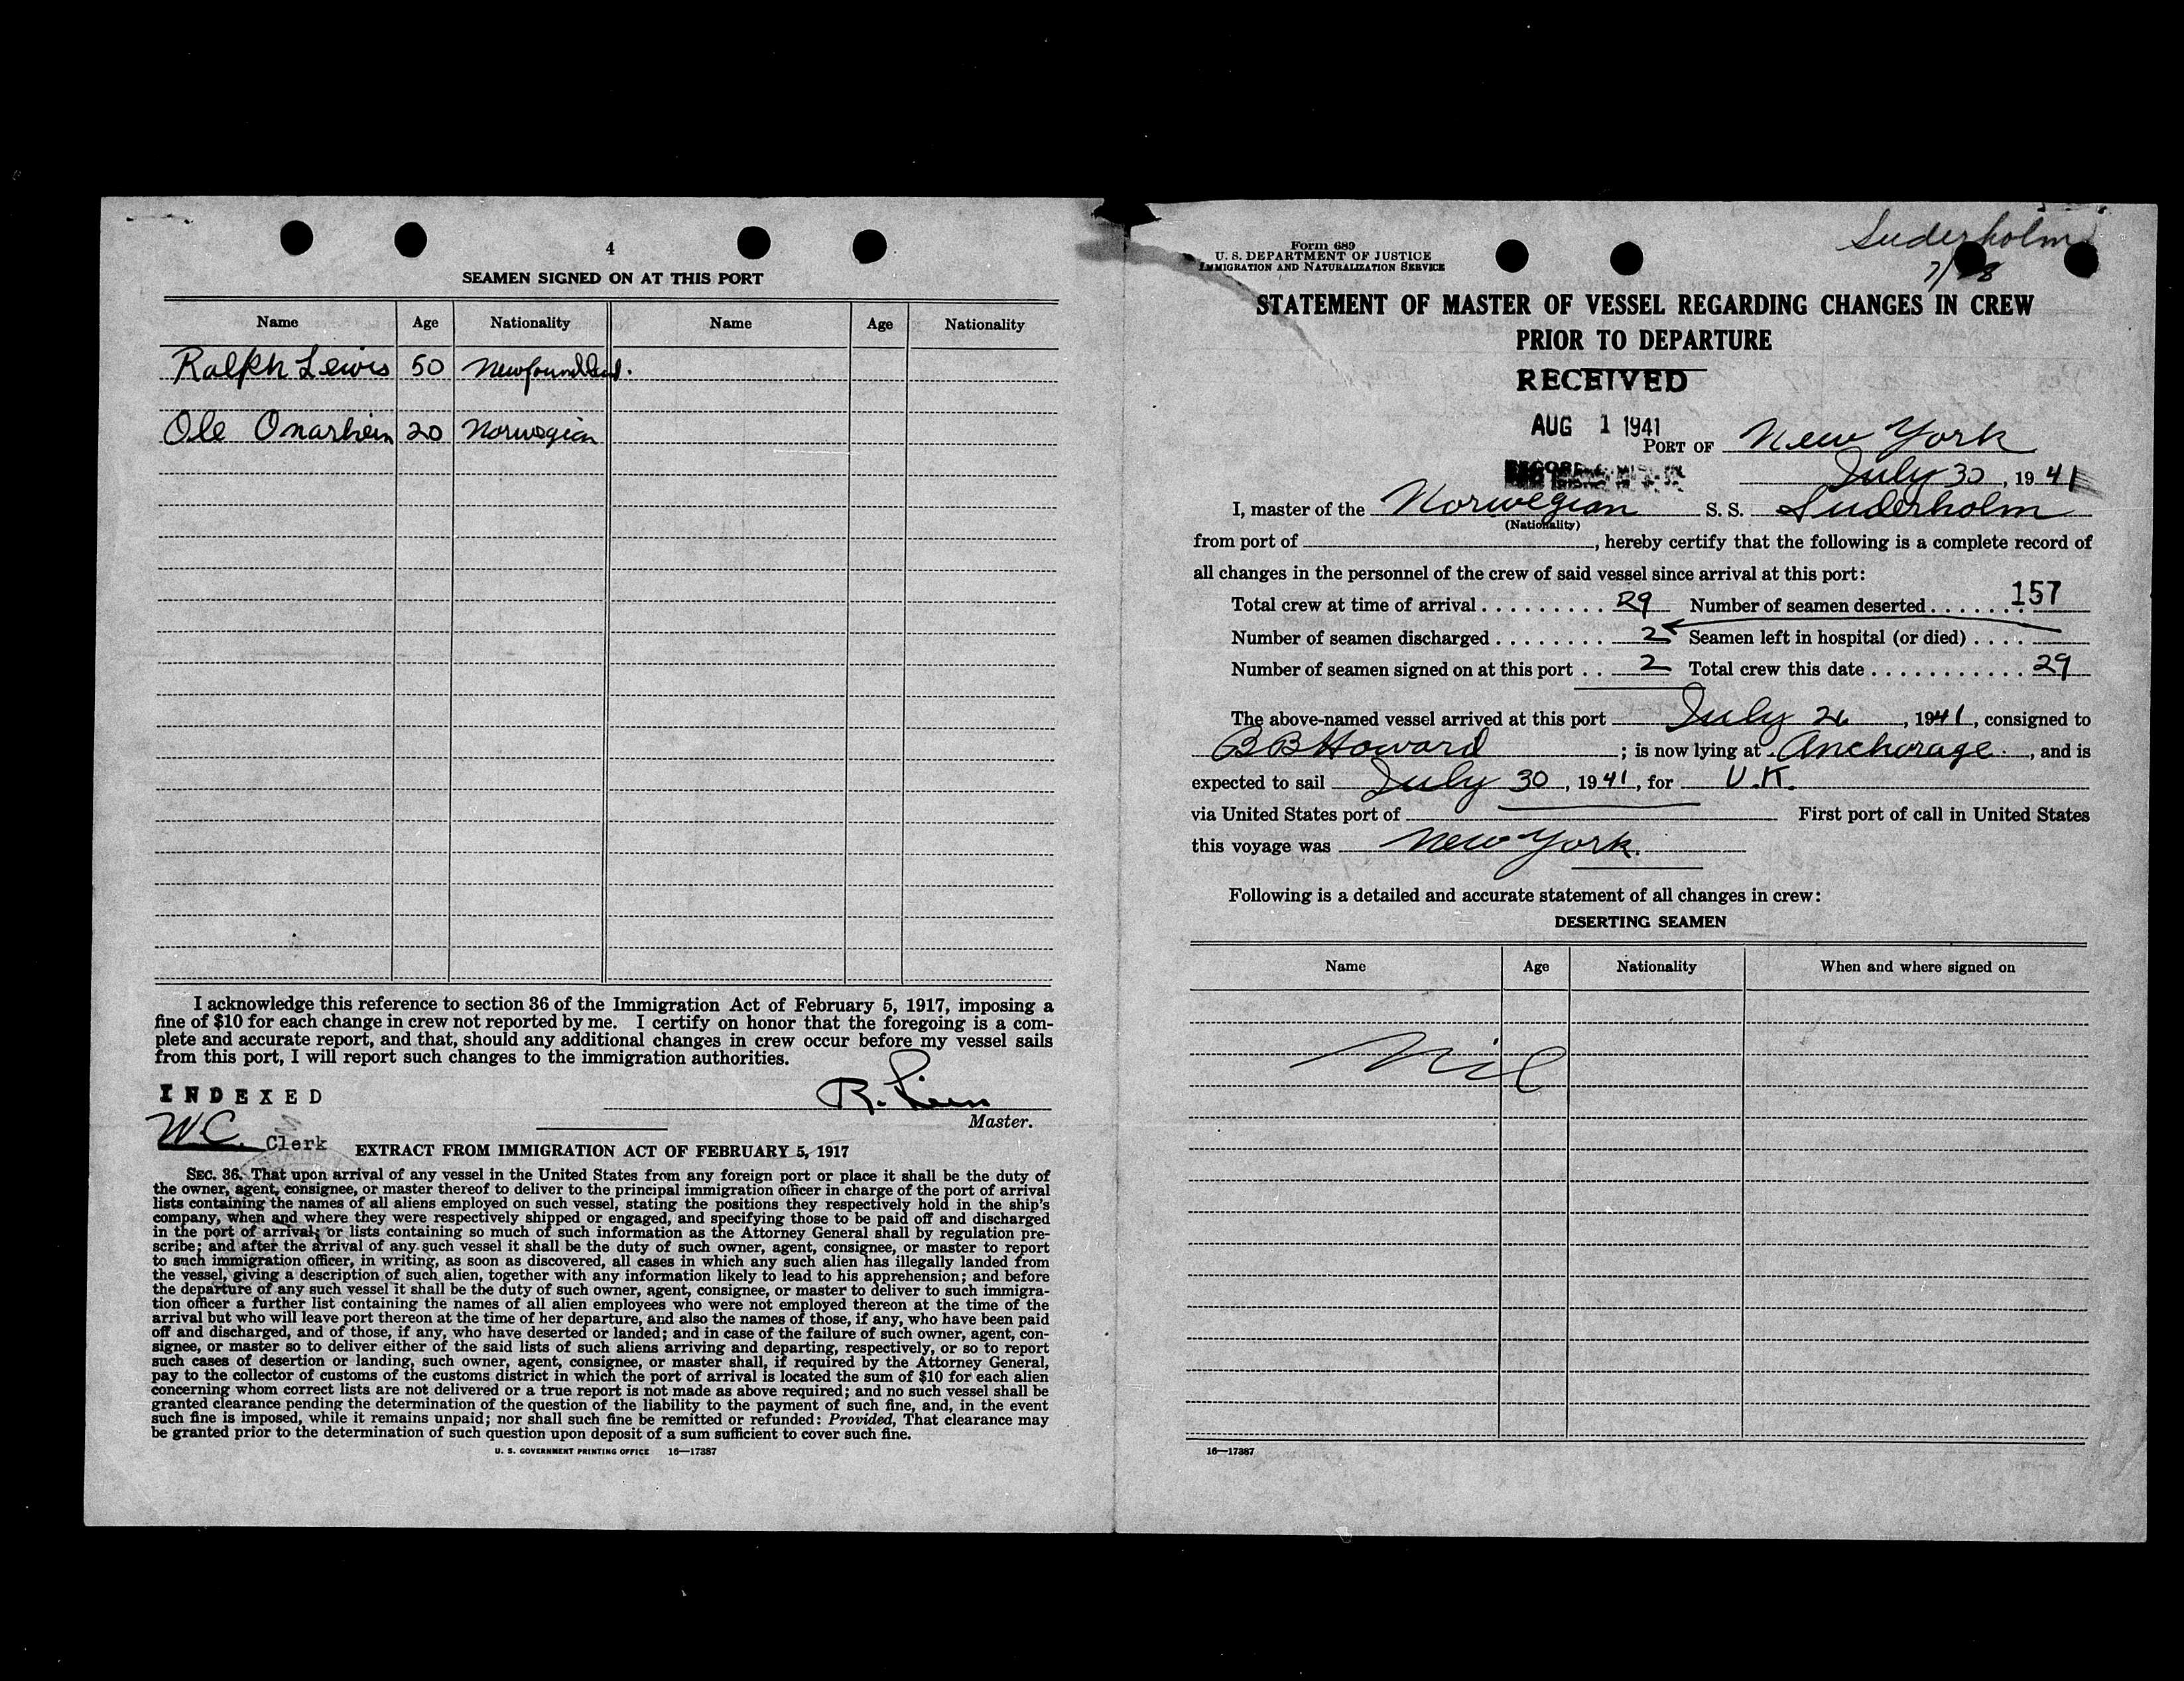 4
SEAMEN SIGNED ON AT THIS PORT
Name Age Nationality Name Age Nationality
Ralph Lewis 50 Newfoundland.
Ole Onarheim 20 Norwegian
I acknowledge this reference to section 36 of the Immigration Act of February 5, 1917, imposing a
fine of $10 for each change in crew not reported by me. I certify on honor that the foregoing is a com-
plete and accurate report, and that, should any additional changes in crew occur before my vessel sails
from this port, I will report such changes to the immigration authorities.
INDEXED
R.
Master.
W.C. Clerk
EXTRACT FROM IMMIGRATION ACT OF FEBRUARY 5, 1917
SEC. 36. That upon arrival of any vessel in the United States from any foreign port or place it shall be the duty of
the owner, agent, consignee, or master thereof to deliver to the principal immigration officer in charge of the port of arrival
lists containing the names of all aliens employed on such vessel, stating the positions they respectively hold in the ship's
company, when and where they were respectively shipped or engaged, and specifying those to be paid off and discharged
in the port of arrival; or lists containing so much of such information as the Attorney General shall by regulation pre-
scribe; and after the arrival of any such vessel it shall be the duty of such owner, agent, consignee, or master to report
to such immigration officer, in writing, as soon as discovered, all cases in which any such alien has illegally landed from
the vessel, giving a description of such alien, together with any information likely to lead to his apprehension; and before
the departure of any such vessel it shall be the duty of such owner, agent, consignee, or master to deliver to such immigra-
tion officer a further list containing the names of all alien employees who were not employed thereon at the time of the
arrival but who will leave port thereon at the time of her departure, and also the names of those, if any, who have been paid
off and discharged, and of those, if any, who have deserted or landed; and in case of the failure of such owner, agent, con-
signee, or master so to deliver either of the said lists of such aliens arriving and departing, respectively, or so to report
such cases of desertion or landing, such owner, agent, consignee, or master shall, if required by the Attorney General,
pay to the collector of customs of the customs district in which the port of arrival is located the sum of $10 for each alien
concerning whom correct lists are not delivered or a true report is not made as above required; and no such vessel shall be
granted clearance pending the determination of the question of the liability to the payment of such fine, and, in the event
such fine is imposed, while it remains unpaid; nor shall such fine be remitted or refunded: Provided, That clearance may
be granted prior to the determination of such question upon deposit of a sum sufficient to cover such fine.
U. S. GOVERNMENT PRINTING OFFICE 16—17387
Suderholm
Form 689
U. S. DEPARTMENT OF JUSTICE
IMMIGRATION AND NATURALIZATION SERVICE
STATEMENT OF MASTER OF VESSEL REGARDING CHANGES IN CREW
PRIOR TO DEPARTURE
RECEIVED
AUG 1 1941
PORT OF New York
July 30, 1941
I, master of the Norwegian S. S. Suderholm
(Nationality)
from port of , hereby certify that the following is a complete record of
all changes in the personnel of the crew of said vessel since arrival at this port:
Total crew at time of arrival . . . . . . . . . 29 Number of seamen deserted . . . . . . . 157
Number of seamen discharged . . . . . . . . 2 Seamen left in hospital (or died) . . . .
Number of seamen signed on at this port . . 2 Total crew this date . . . . . . . . . . . . 29
The above-named vessel arrived at this port July 26, 1941, consigned to
B B Howard ; is now lying at Anchorage , and is
expected to sail July 30, 1941, for U.K.
via United States port of First port of call in United States
this voyage was New York.
Following is a detailed and accurate statement of all changes in crew:
DESERTING SEAMEN
Name Age Nationality When and where signed on
Nil
16—17387